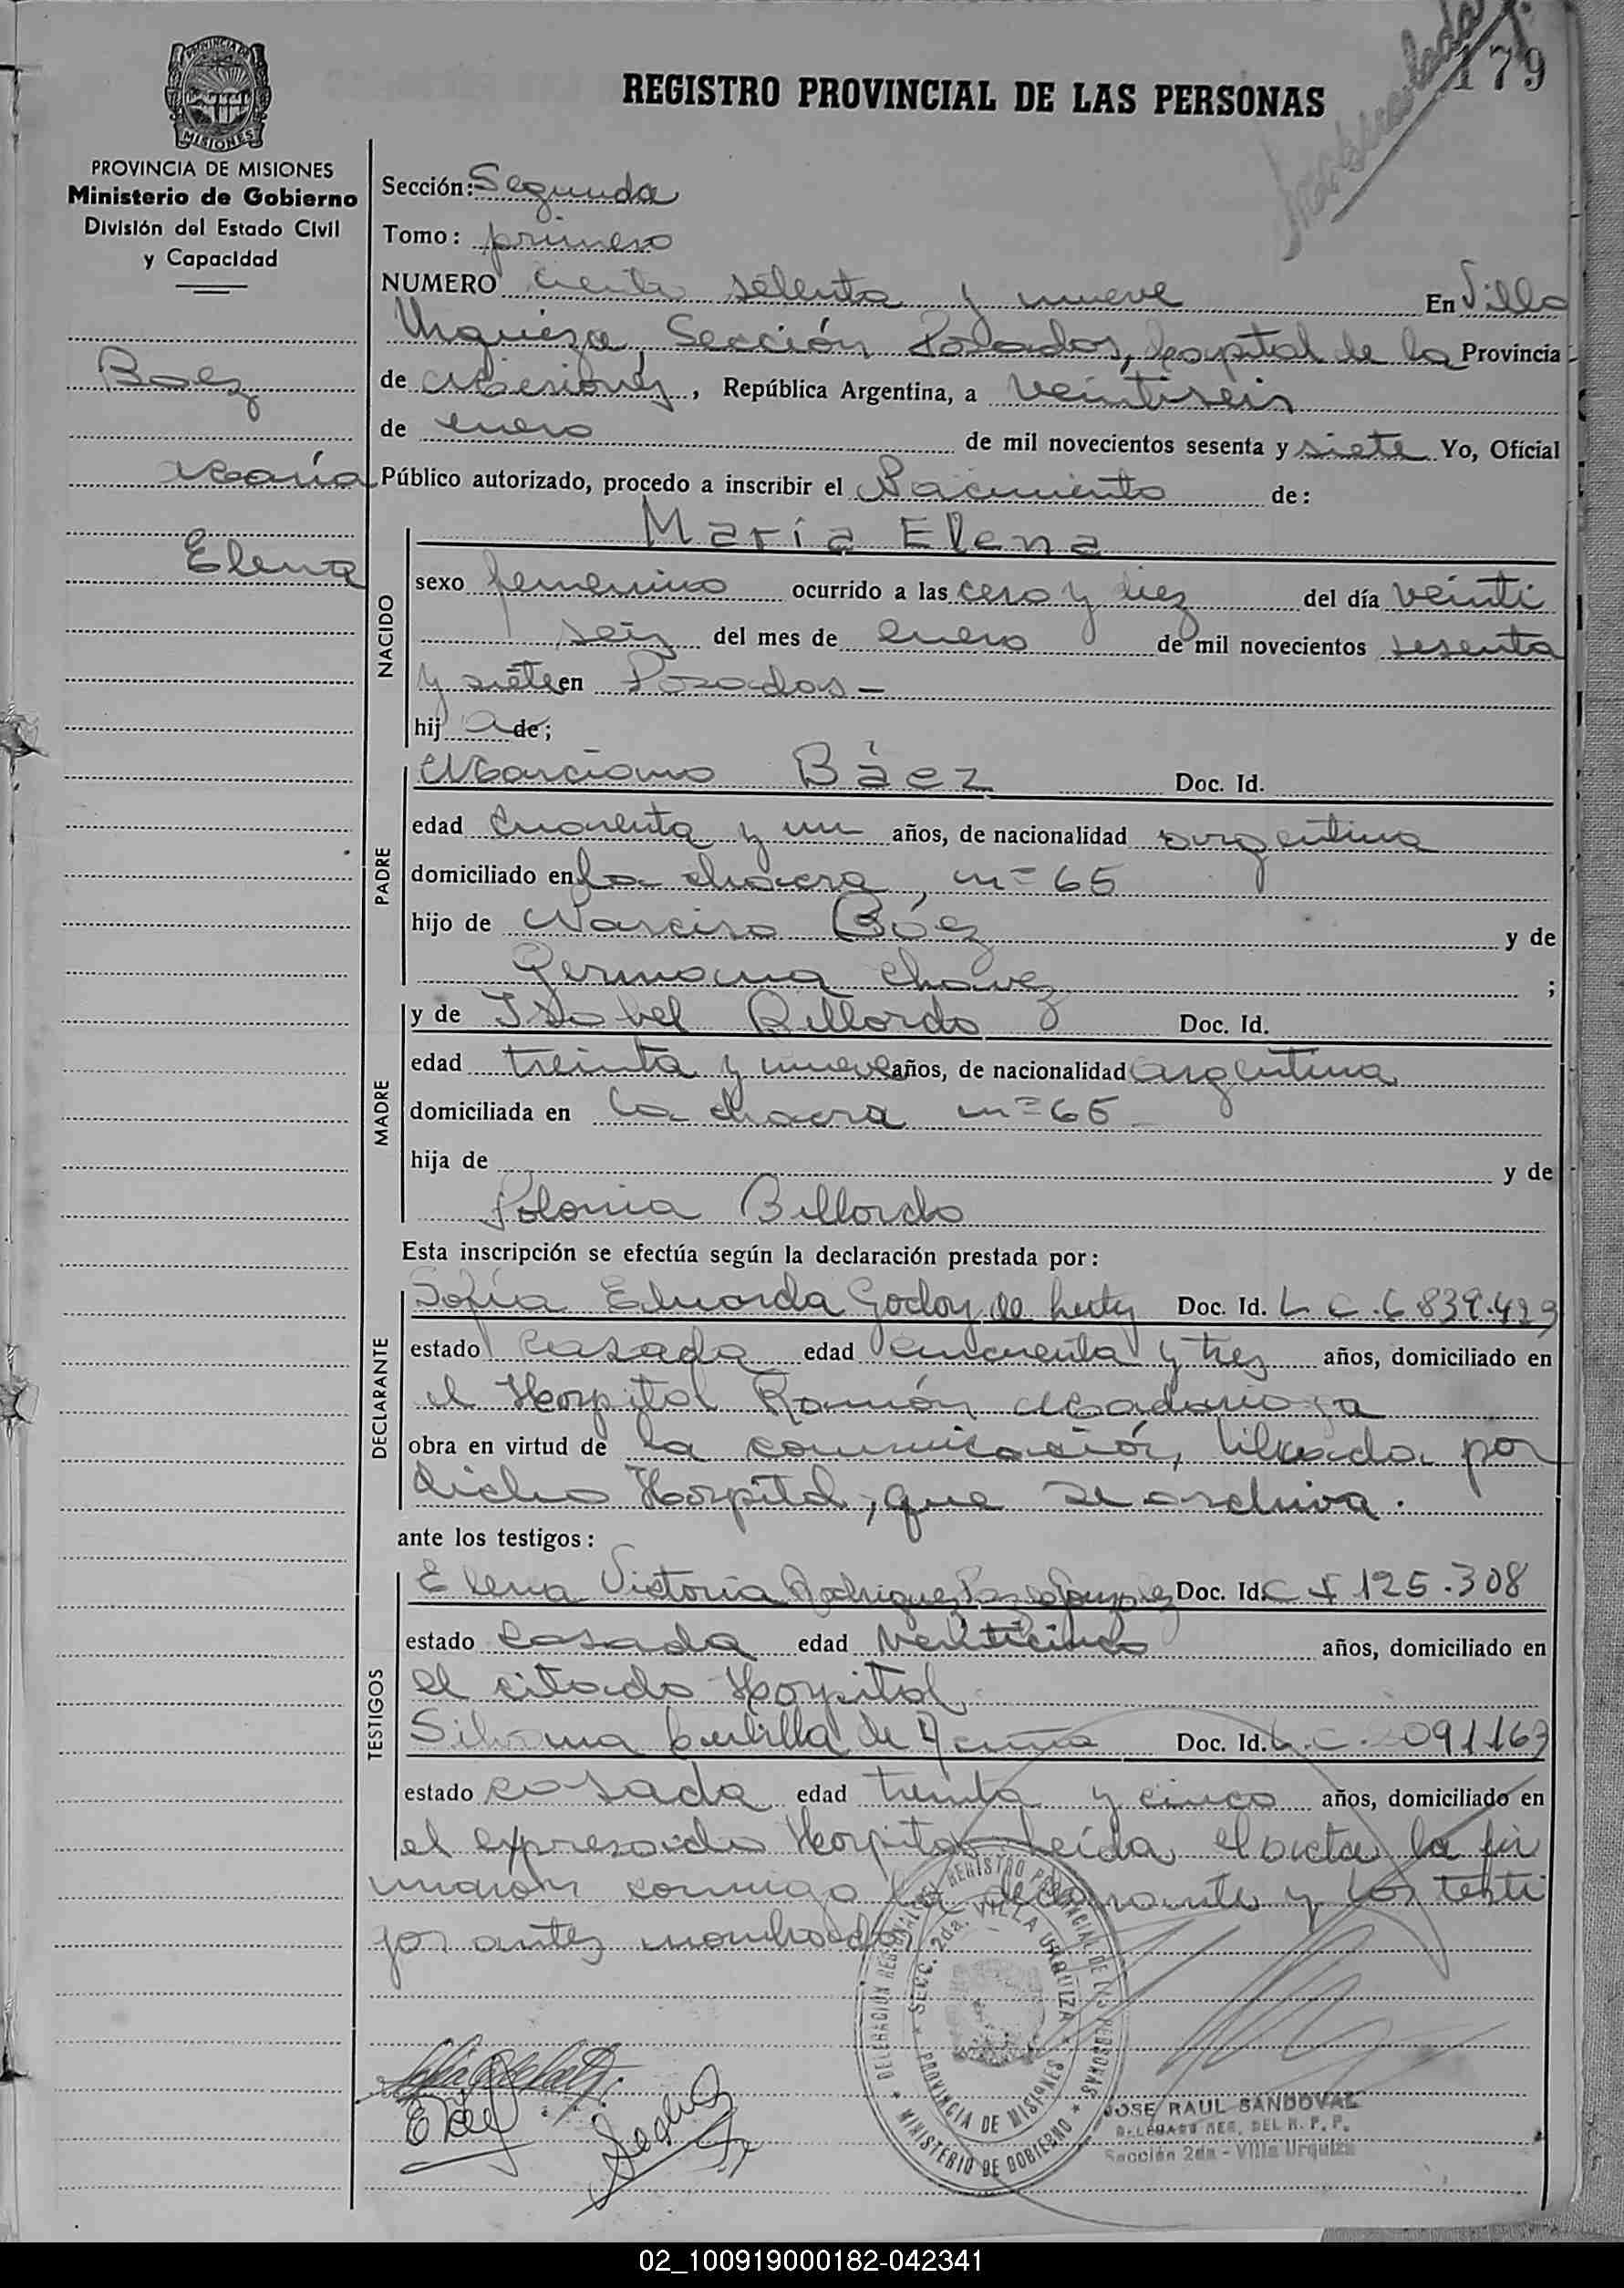 179
REGISTRO PROVINCIAL DE LAS PERSONAS
PROVINCIA DE
MISIONES
PROVINCIA DE MISIONES
Ministerio de Gobierno
División del Estado Civil
y Capacidad
Baez
María
Elena
Sección: Segunda
Tomo: primero
NUMERO ciento setenta y nueve En Villa
Urquiza, Sección Posadas, Capital de la Provincia
de Misiones, República Argentina, a veintiseis
de enero de mil novecientos sesenta y siete Yo, Oficial
Público autorizado, procedo a inscribir el Nacimiento de:
NACIDO
María Elena
sexo femenino ocurrido a las cero y diez del día veinti
seis del mes de enero de mil novecientos sesenta
y siete en Posadas -
hij a de;
PADRE
Marciano Báez Doc. Id.
edad cuarenta y un años, de nacionalidad argentina
domiciliado en la chacra, nº 65
hijo de Narciso Báez y de
Germana Chavez ;
MADRE
y de Isabel Billordo Doc. Id.
edad treinta y nueve años, de nacionalidad argentina
domiciliada en la chacra nº 65
hija de y de
Polonia Billordo
Esta inscripción se efectúa según la declaración prestada por:
DECLARANTE
Sofía Eduarda Godoy de Doc. Id. L.C. 6.839.429
estado casada edad cincuenta y tres años, domiciliado en
el Hospital Ramón Madariaga
obra en virtud de la comunicación, librada por
dicho Hospital, que se archiva.
ante los testigos:
TESTIGOS
Elena Victoria Rodriguez Doc. Id. C I 125.308
estado casada edad veinticinco años, domiciliado en
el citado Hospital
Silvana de Acuña Doc. Id. L.C. 091163
estado casada edad treinta y cinco años, domiciliado en
el expresado Hospital Leída el acta la fir
maron conmigo la declarante y los testi
gos antes nombrados
DELEGACIÓN REGIONAL DEL REGISTRO PROVINCIAL DE LAS PERSONAS
SECC. 2da. VILLA URQUIZA
PROVINCIA DE MISIONES
MINISTERIO DE GOBIERNO
JOSE RAUL SANDOVAL
DELEGADO REG. DEL R. P. P.
Sección 2da - Villa Urquiza
02_100919000182-042341